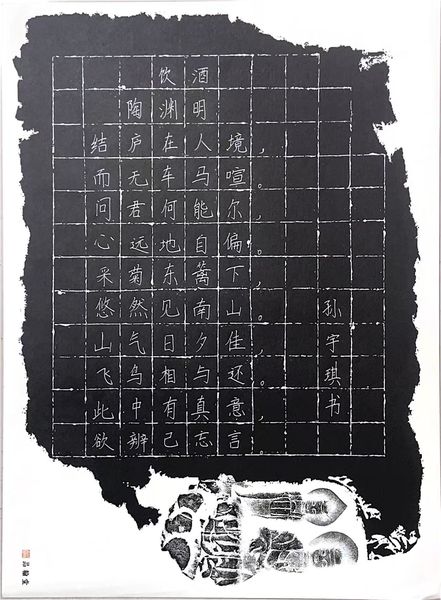 饮酒
陶渊明
结庐在人境，
而无车马喧。
问君何能尔，
心远地自偏。
采菊东篱下，
悠然见南山。
山气日夕佳，
飞鸟相与还。
此中有真意，
欲辨已忘言。
孙宇琪书